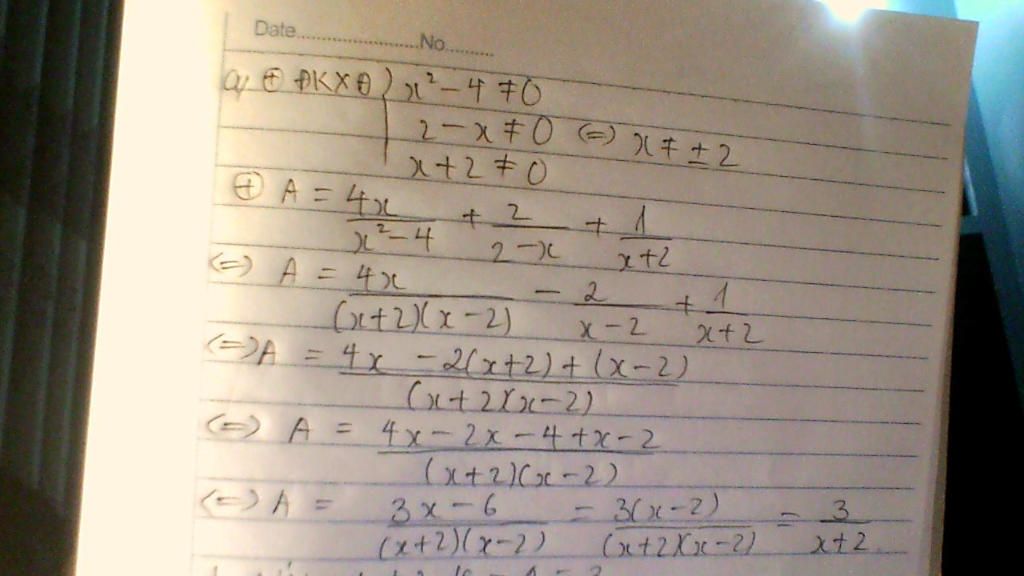 Date............................No..........
a) ⊕ ĐKXĐ ) x² - 4 ≠ 0
2 - x ≠ 0 <=> x ≠ ± 2
x + 2 ≠ 0
⊕ A = 4x/(x² - 4) + 2/(2 - x) + 1/(x + 2)
<=> A = 4x/((x+2)(x-2)) - 2/(x-2) + 1/(x+2)
<=> A = (4x - 2(x+2) + (x-2))/((x+2)(x-2))
<=> A = (4x - 2x - 4 + x - 2)/((x+2)(x-2))
<=> A = (3x - 6)/((x+2)(x-2)) = 3(x-2)/((x+2)(x-2)) = 3/(x+2)